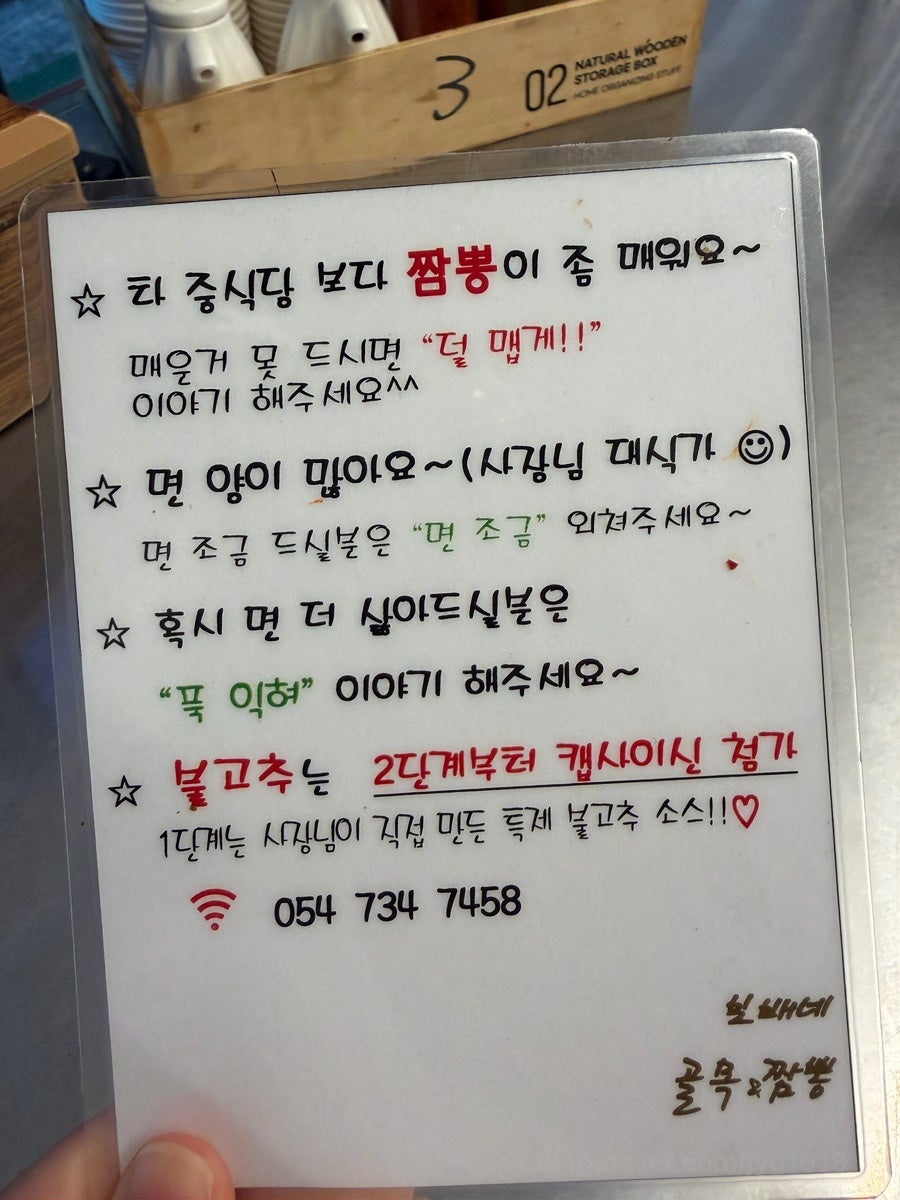 3
02 NATURAL WOODEN
STORAGE BOX
HOME ORGANIZING STUFF
☆ 타 중식당 보다 짬뽕이 좀 매워요~
매운거 못 드시면 “덜 맵게!!”
이야기 해주세요^^
☆ 면 양이 많아요~(사장님 대식가 ☺)
면 조금 드실분은 “면 조금” 외쳐주세요~
☆ 혹시 면 더 삶아드실분은
“푹 익혀” 이야기 해주세요~
☆ 불고추는 2단계부터 캡사이신 첨가
1단계는 사장님이 직접 만든 특제 불고추 소스!!♡
054 734 7458
골목&짬뽕